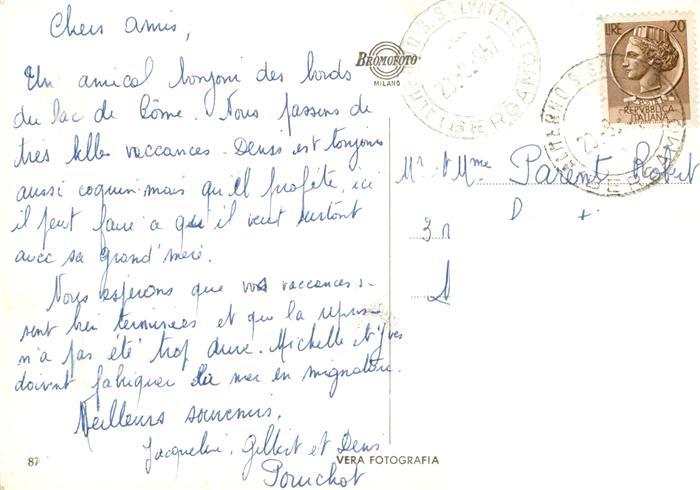 Chers amis,
Un amical bonjour des bords
du lac de Côme. Nous passons de
très belles vaccances. Denis est toujours
aussi coquin mais qu'il profite, ici
il peut faire ce qu'il veut surtout
avec sa grand'mère.
Nous espérons que vos vaccances se
sont bien terminées et que la reprise
n'a pas été trop dure. Michelle et Yves
doivent fabriquer la mer en mignature.
Meilleurs souvenirs,
Jacqueline, Gilbert et Denis
Pouchot
87
BROMOFOTO
MILANO
VERA FOTOGRAFIA
LIRE 20
POSTE
REPVBBLICA
ITALIANA
ALMENNO S. SALVATORE
BERGAMO
Mr et Mme Parent Robert